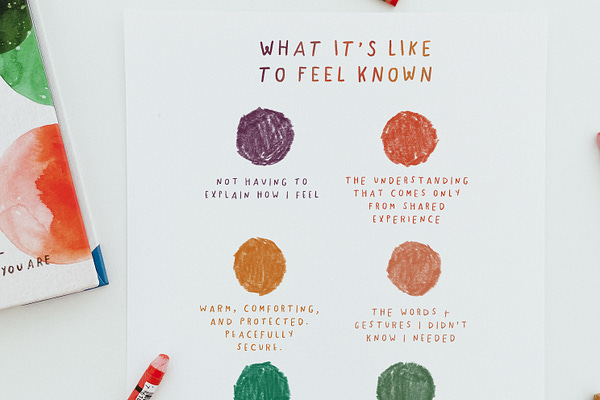 WHAT IT'S LIKE
TO FEEL KNOWN
NOT HAVING TO
EXPLAIN HOW I FEEL
THE UNDERSTANDING
THAT COMES ONLY
FROM SHARED
EXPERIENCE
WARM, COMFORTING,
AND PROTECTED.
PEACEFULLY
SECURE.
THE WORDS +
GESTURES I DIDN'T
KNOW I NEEDED
YOU ARE